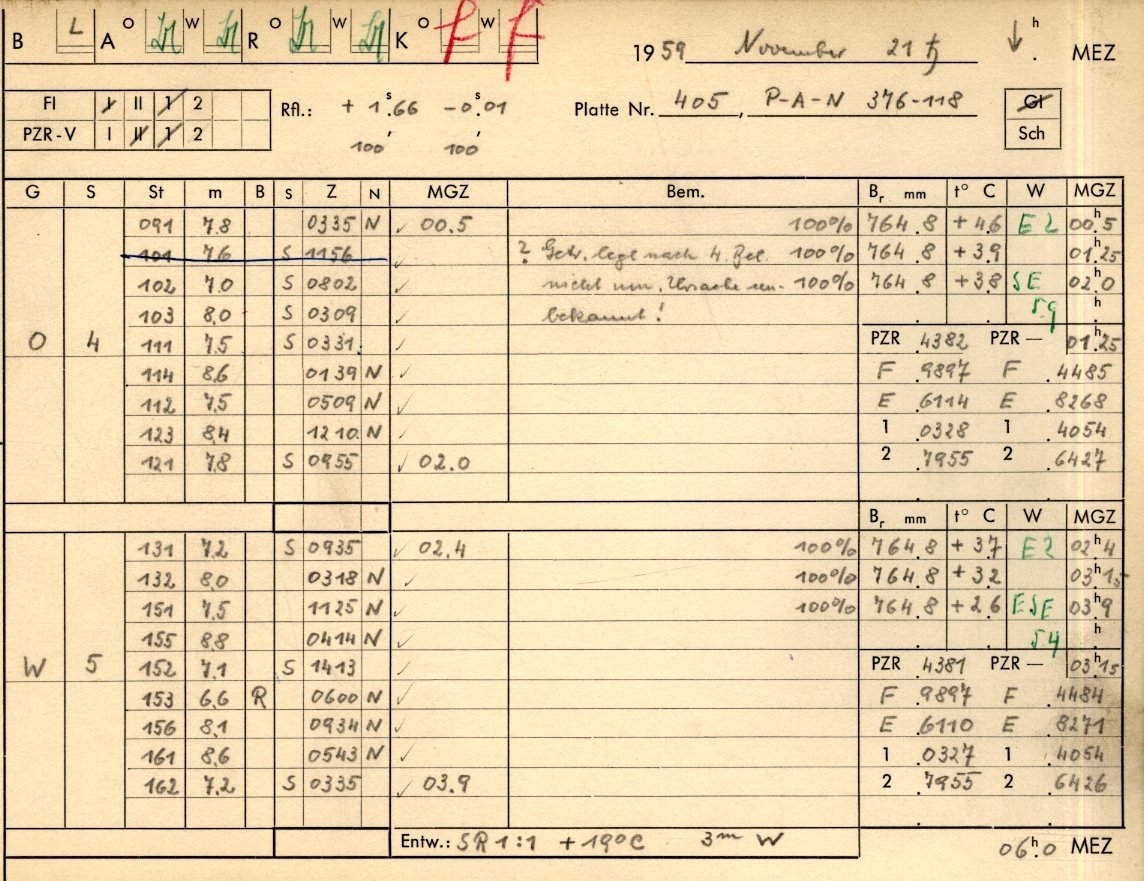 B L A O W R O W K O W 19 59 November 21 ♄ ↓ h . MEZ
FI I II 1 2 Rfl.: + 1ˢ.66 −0ˢ.01 Platte Nr. 405, P-A-N 376-118 Gl
PZR-V I II 1 2 100' 100' Sch
G S St m B S Z N MGZ Bem. Bᵣ mm t° C W MGZ
091 7.8 0335 N ✓ 00.5 100% 764.8 + 4.6 E 2 00ʰ.5
101 7.6 S 1156 ✓ ? legt nach 4. 100% 764.8 + 3.9 01.25
102 7.0 S 0802 ✓ nicht um. Ursache un- 100% 764.8 + 3.8 SE 02.0
103 8.0 S 0309 ✓ bekannt! 5.9 h
O 4 111 7.5 S 0331 ✓ PZR .4382 PZR — 01ʰ.25
114 8.6 0139 N ✓ F .9897 F .4485
112 7.5 0509 N ✓ E .6114 E .8268
123 8.4 1210 N ✓ 1 .0328 1 .4054
121 7.8 S 0955 ✓ 02.0 2 .7955 2 .6427
Bᵣ mm t° C W MGZ
131 7.2 S 0935 ✓ 02.4 100% 764.8 + 3.7 E 2 02ʰ.4
132 8.0 0318 N ✓ 100% 764.8 + 3.2 03ʰ.15
151 7.5 1125 N ✓ 100% 764.8 + 2.6 ESE 03ʰ.9
155 8.8 0414 N ✓ 5.4 h
W 5 152 7.1 S 1413 ✓ PZR .4381 PZR — 03ʰ.15
153 6.6 R 0600 N ✓ F .9897 F .4484
156 8.1 0934 N ✓ E .6110 E .8271
161 8.6 0543 N ✓ 1 .0327 1 .4054
162 7.2 S 0335 ✓ 03.9 2 .7955 2 .6426
Entw.: SR 1:1 + 19°C 3ᵐ W 06ʰ.0 MEZ